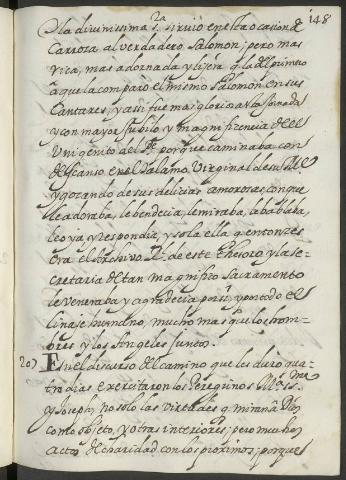 148
sta diuinissima S.ra siruio en esta ocasion de
Carroza al verdadero Salomon; pero mas
rica, mas adornada y ligera q̃ la del primero
à que la comparò el mismo Salomon en sus
Cantares, y assi fue mas gloriosa esta jornada
y con mayor jubilo y magnificencia de el
Unigenito del P.e porque caminaba con
descanso en el talamo Virginal de su M.e
y gozando de sus delicias amorosas, con que
le adoraba, le bendecia, le miraba, le hablaba,
le oya, y respondia, y sola ella q̃ entonzes
era el Archivo R.l de este thesoro y la se-
cretaria de tan magnifico Sacramento
le veneraba y agradecia por si, y por todo el
linaje humano, mucho mas que los hom-
bres y los Angeles juntos.
207 En el discurso del camino que les duro qua-
tro dias exercitaron los Peregrinos Mar.a SS.ma
y Joseph, no solo las virtudes q̃ miran à Dios
como objeto, y otras interiores, pero muchos
actos de charidad con los proximos; porque